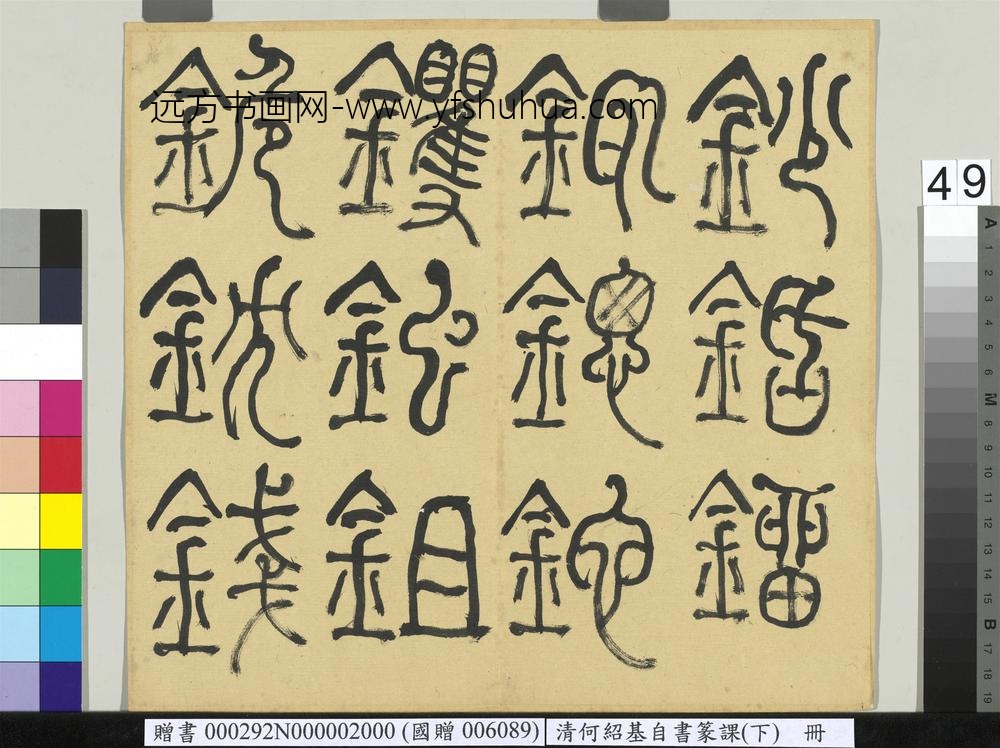 远方书画网-www.yfshuhua.com
鈔
鐂
鏓
钁鈐鉏
鈂錢
49
A 1 2 3 4 5 6 M 8 9 10 11 12 13 14 15 B 17 18 19
贈書 000292N000002000 (國贈 006089)
清何紹基自書篆課(下) 冊